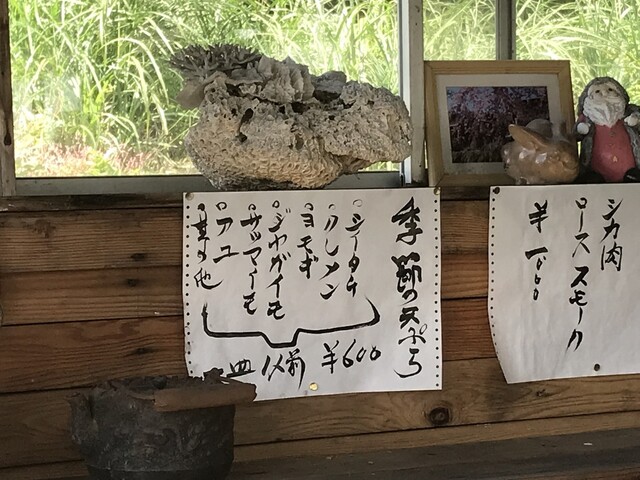 季節の天ぷら
○シータケ
○クレメン
○ヨモギ
○ジャガイモ
○サツマイモ
○アユ
○其の他
一皿 1人前 ¥600
シカ肉
ロース スモーク
¥1000